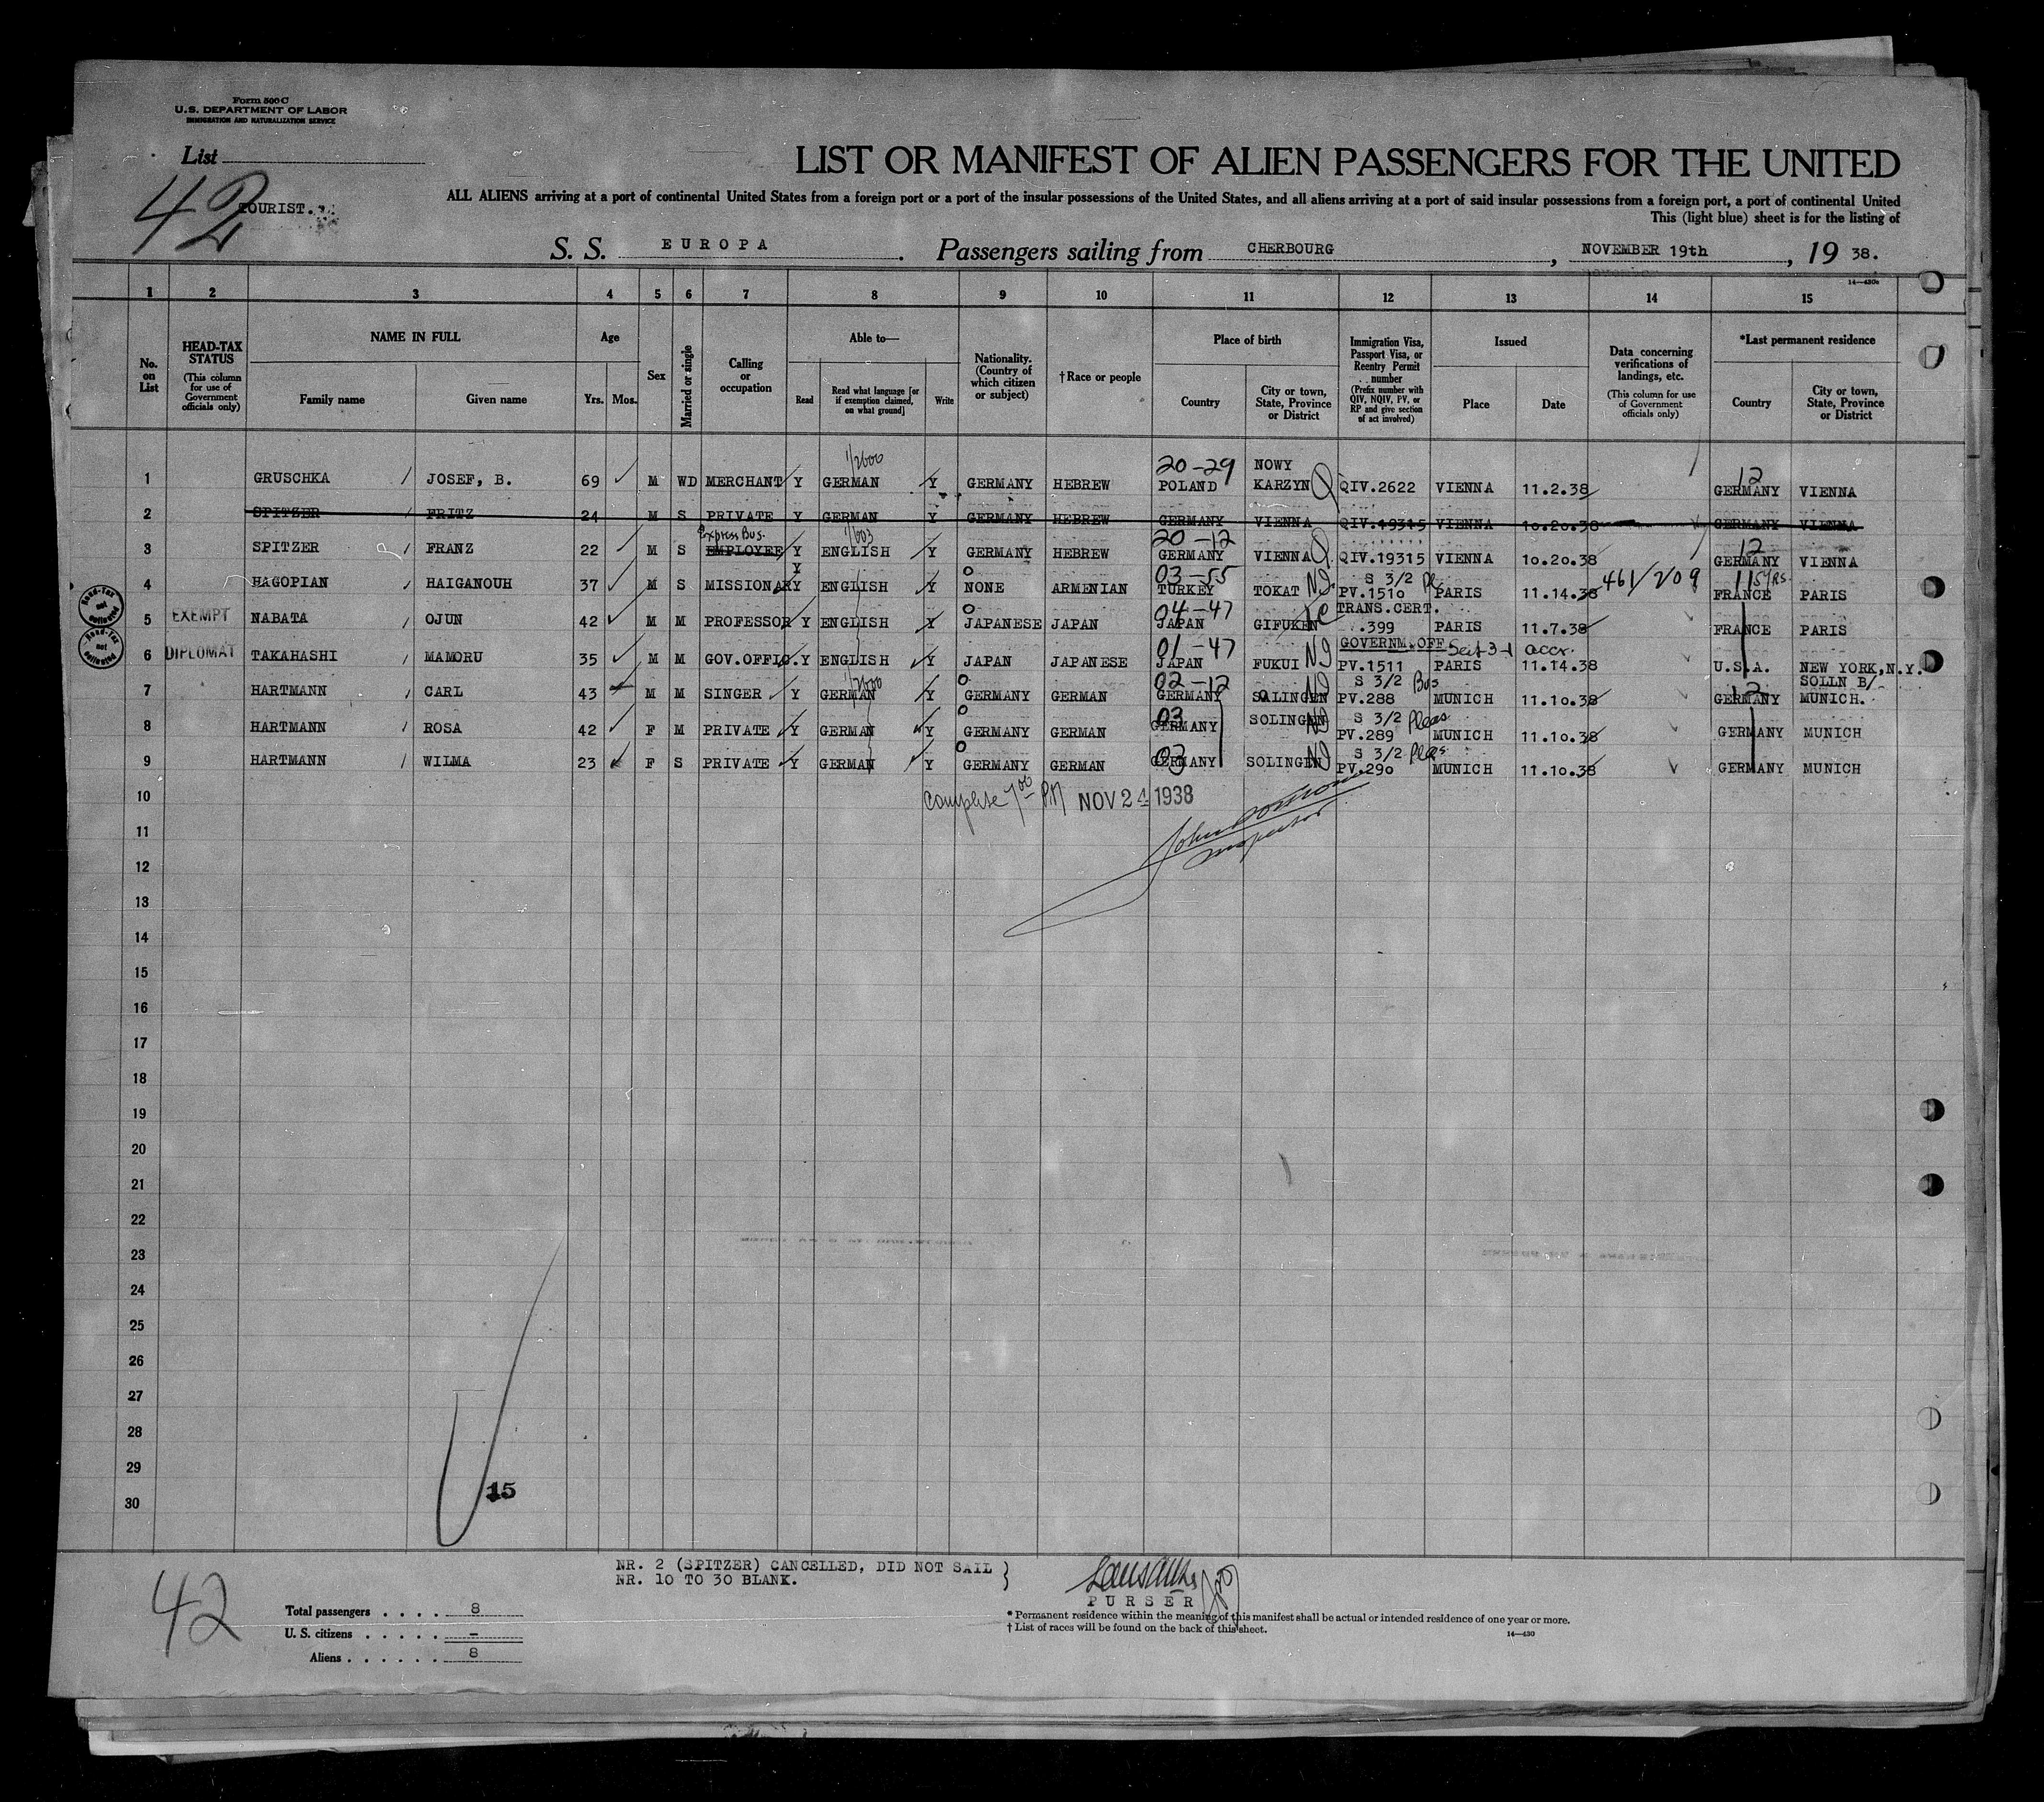 Form 500 C
U.S. DEPARTMENT OF LABOR
IMMIGRATION AND NATURALIZATION SERVICE
List
42
TOURIST.
LIST OR MANIFEST OF ALIEN PASSENGERS FOR THE UNITED
ALL ALIENS arriving at a port of continental United States from a foreign port or a port of the insular possessions of the United States, and all aliens arriving at a port of said insular possessions from a foreign port, a port of continental United
This (light blue) sheet is for the listing of
S. S. EUROPA. Passengers sailing from CHERBOURG, NOVEMBER 19th, 19 38.
14—430a
1 2 3 4 5 6 7 8 9 10 11 12 13 14 15
No. on List
HEAD-TAX STATUS (This column for use of Government officials only)
NAME IN FULL Family name Given name
Age Yrs. Mos.
Sex
Married or single
Calling or occupation
Able to— Read Read what language [or if exemption claimed, on what ground] Write
Nationality. (Country of which citizen or subject)
†Race or people
Place of birth Country City or town, State, Province or District
Immigration Visa, Passport Visa, or Reentry Permit number (Prefix number with QIV, NQIV, PV, or RP and give section of act involved)
Issued Place Date
Data concerning verifications of landings, etc. (This column for use of Government officials only)
*Last permanent residence Country City or town, State, Province or District
1/2600 20-29 NOWY 12
1 GRUSCHKA JOSEF, B. 69 M WD MERCHANT Y GERMAN Y GERMANY HEBREW POLAND KARZYN QIV.2622 VIENNA 11.2.38 GERMANY VIENNA
2 SPITZER FRITZ 24 M S PRIVATE Y GERMAN Y GERMANY HEBREW GERMANY VIENNA QIV.19315 VIENNA 10.20.38 GERMANY VIENNA
Express Bus. 1/603 20-12 12
3 SPITZER FRANZ 22 M S EMPLOYEE Y ENGLISH Y GERMANY HEBREW GERMANY VIENNA QIV.19315 VIENNA 10.20.38 GERMANY VIENNA
03-55 S 3/2 Pl. 461/209 11 5 yrs.
4 HAGOPIAN HAIGANOUH 37 M S MISSIONARY Y ENGLISH Y NONE ARMENIAN TURKEY TOKAT PV.1510 PARIS 11.14.38 FRANCE PARIS
Head-Tax not collected
04-47 TRANS.CERT.
5 EXEMPT NABATA OJUN 42 M M PROFESSOR Y ENGLISH Y JAPANESE JAPAN JAPAN GIFUKEN .399 PARIS 11.7.38 FRANCE PARIS
Head-Tax not collected
01-47 GOVERNM.OFF. Sect 3-1 accr.
6 DIPLOMAT TAKAHASHI MAMORU 35 M M GOV.OFFIC. Y ENGLISH Y JAPAN JAPANESE JAPAN FUKUI PV.1511 PARIS 11.14.38 U.S.A. NEW YORK,N.Y.
1/2600 02-12 S 3/2 Bus 12 SOLLN B/
7 HARTMANN CARL 43 M M SINGER Y GERMAN Y GERMANY GERMAN GERMANY SOLINGEN PV.288 MUNICH 11.10.38 GERMANY MUNICH.
03 S 3/2 Pleas
8 HARTMANN ROSA 42 F M PRIVATE Y GERMAN Y GERMANY GERMAN GERMANY SOLINGEN PV.289 MUNICH 11.10.38 GERMANY MUNICH
03 S 3/2 Pleas
9 HARTMANN WILMA 23 F S PRIVATE Y GERMAN Y GERMANY GERMAN GERMANY SOLINGEN PV.290 MUNICH 11.10.38 GERMANY MUNICH
10 Complete 7 00 PM NOV 24 1938
11 John
12 Inspector
13
14
15
16
17
18
19
20
21
22
23
24
25
26
27
28
29
15
30
NR. 2 (SPITZER) CANCELLED, DID NOT SAIL
NR. 10 TO 30 BLANK.
PURSER
42
Total passengers . . . . 8
U. S. citizens . . . . . —
Aliens . . . . . . 8
* Permanent residence within the meaning of this manifest shall be actual or intended residence of one year or more.
† List of races will be found on the back of this sheet.
14—430